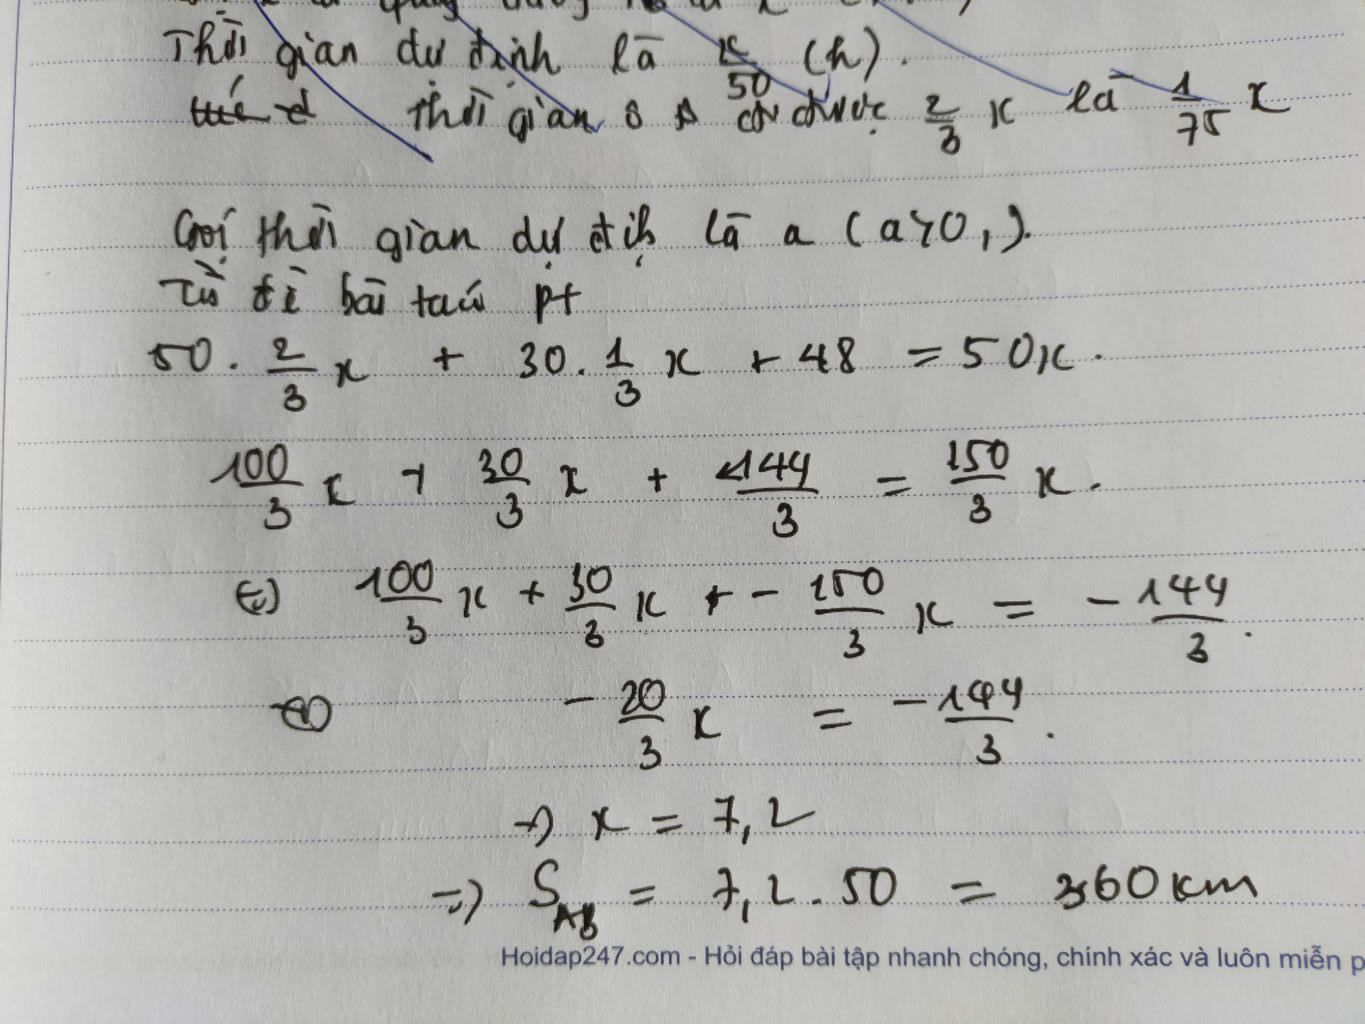 Thời gian dự định là x/50 (h).
thời gian ô đi được 2/3 x là 1/75 x
Gọi thời gian dự địh là a (a>0,).
Từ đề bài ta có pt
50 . 2/3 x + 30 . 1/3 x + 48 = 50x .
100/3 x + 30/3 x + 144/3 = 150/3 x .
(=) 100/3 x + 30/3 x - 150/3 x = - 144/3 .
- 20/3 x = - 144/3 .
=> x = 7,2
=> S_AB = 7,2 . 50 = 360km
Hoidap247.com - Hỏi đáp bài tập nhanh chóng, chính xác và luôn miễn p